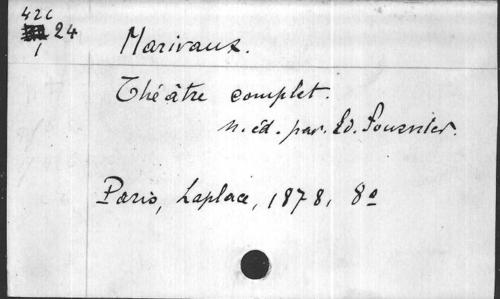 42c
24
1
Marivaux.
Théâtre complet.
n. éd. par. Ed. Fournier.
Paris, Laplace, 1878, 8º